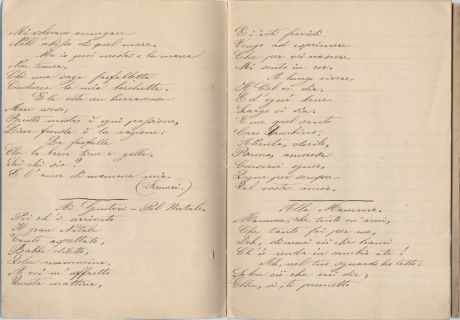 Mi volevano annegare
Nell' abisso di quel mare.
Ma io quei mostri e la marea
Non temea,
Chi una vaga farfalletta
Conducea la mia barchetta.
E la vita un burrascoso
Mare
Brutti mostri è ogni passione,
Dove fonda è la ragione:
La farfalla
Che la barca tiene a galla,
Sai chi sia?
E l' amor di mamma mia.
Ai Genitori - Pel Natale.
Poi ch' è arrivato
Il gran Natale
Tanto aspettato,
Babbo diletto,
Dolce mammina,
A voi m' affretto
Questa mattina,
E i voti
Vengo ad esprimere
Che per voi nascere
Mi sento in cor.
A lungo vivere
Il Ciel vi dia,
E d' ogni bene
Largo vi sia;
E me quel
Caro Bambino,
Attento, docile,
Buono, amorose
Conservi ognor,
Degno per sempre
Del vostro amor.
Alla Mamma.
Mamma, che tanto m' ami,
Che tanto fai per me,
Deh, dimmi ciò che brami
Ch' io renda in cambio a te!
Ah, nel tuo sguardo ho letto,
So ben ciò che vuoi dir,
Ebben, sì, ti prometto